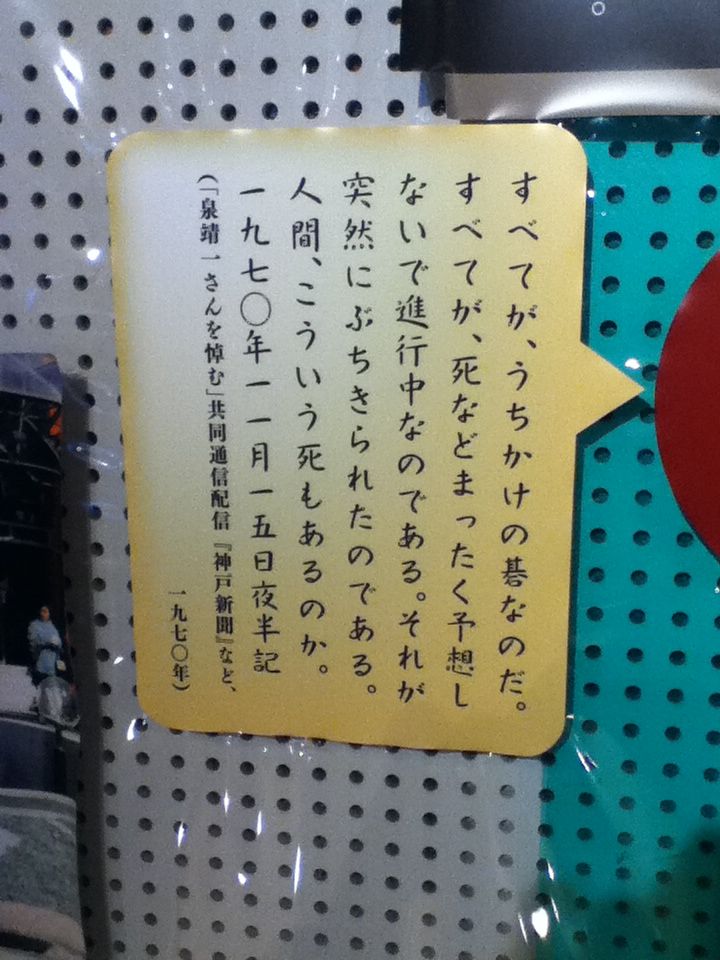 すべてが、うちかけの碁なのだ。
すべてが、死などまったく予想し
ないで進行中なのである。それが
突然にぶちきられたのである。
人間、こういう死もあるのか。
一九七〇年一一月一五日夜半記
(「泉靖一さんを悼む」共同通信配信『神戸新聞』など、
一九七〇年)